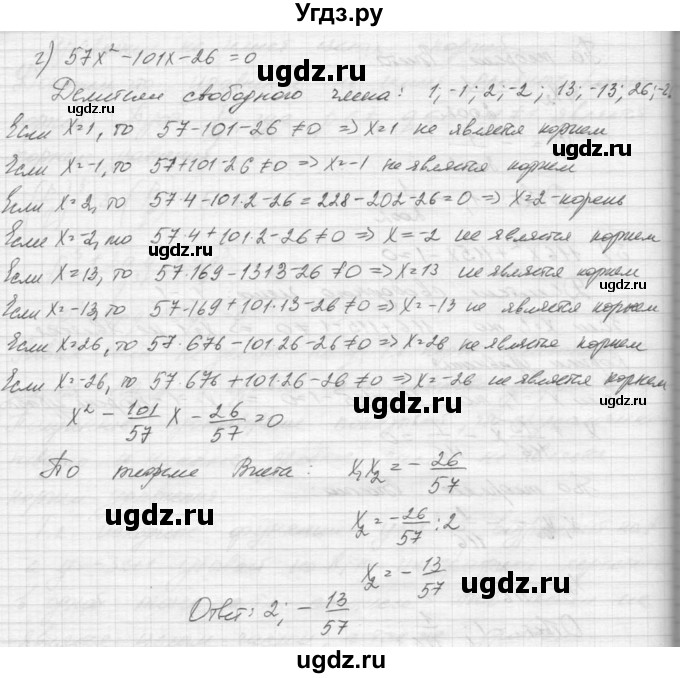 Угдз.ру
г) 57x² - 101x - 26 = 0
Делители свободного члена: 1; -1; 2; -2; 13; -13; 26; -2
Если x=1, то 57-101-26≠0 => x=1 не является корнем
Если x=-1, то 57+101-26≠0 => x=-1 не является корнем
Если x=2, то 57·4-101·2-26=228-202-26=0 => x=2-корень
Если x=-2, то 57·4+101·2-26≠0 => x=-2 не является корнем
Если x=13, то 57·169-1313-26≠0 => x=13 не является корнем
Если x=-13, то 57·169+101·13-26≠0 => x=-13 не является корнем
Если x=26, то 57·676-101·26-26≠0 => x=26 не является корнем
Если x=-26, то 57·676+101·26-26≠0 => x=-26 не является корнем
x² - 101/57 x - 26/57 = 0
По теореме Виета: x₁x₂ = - 26/57
x₂ = -26/57 : 2
x₂ = - 13/57
Ответ: 2; - 13/57
uGdz.ru